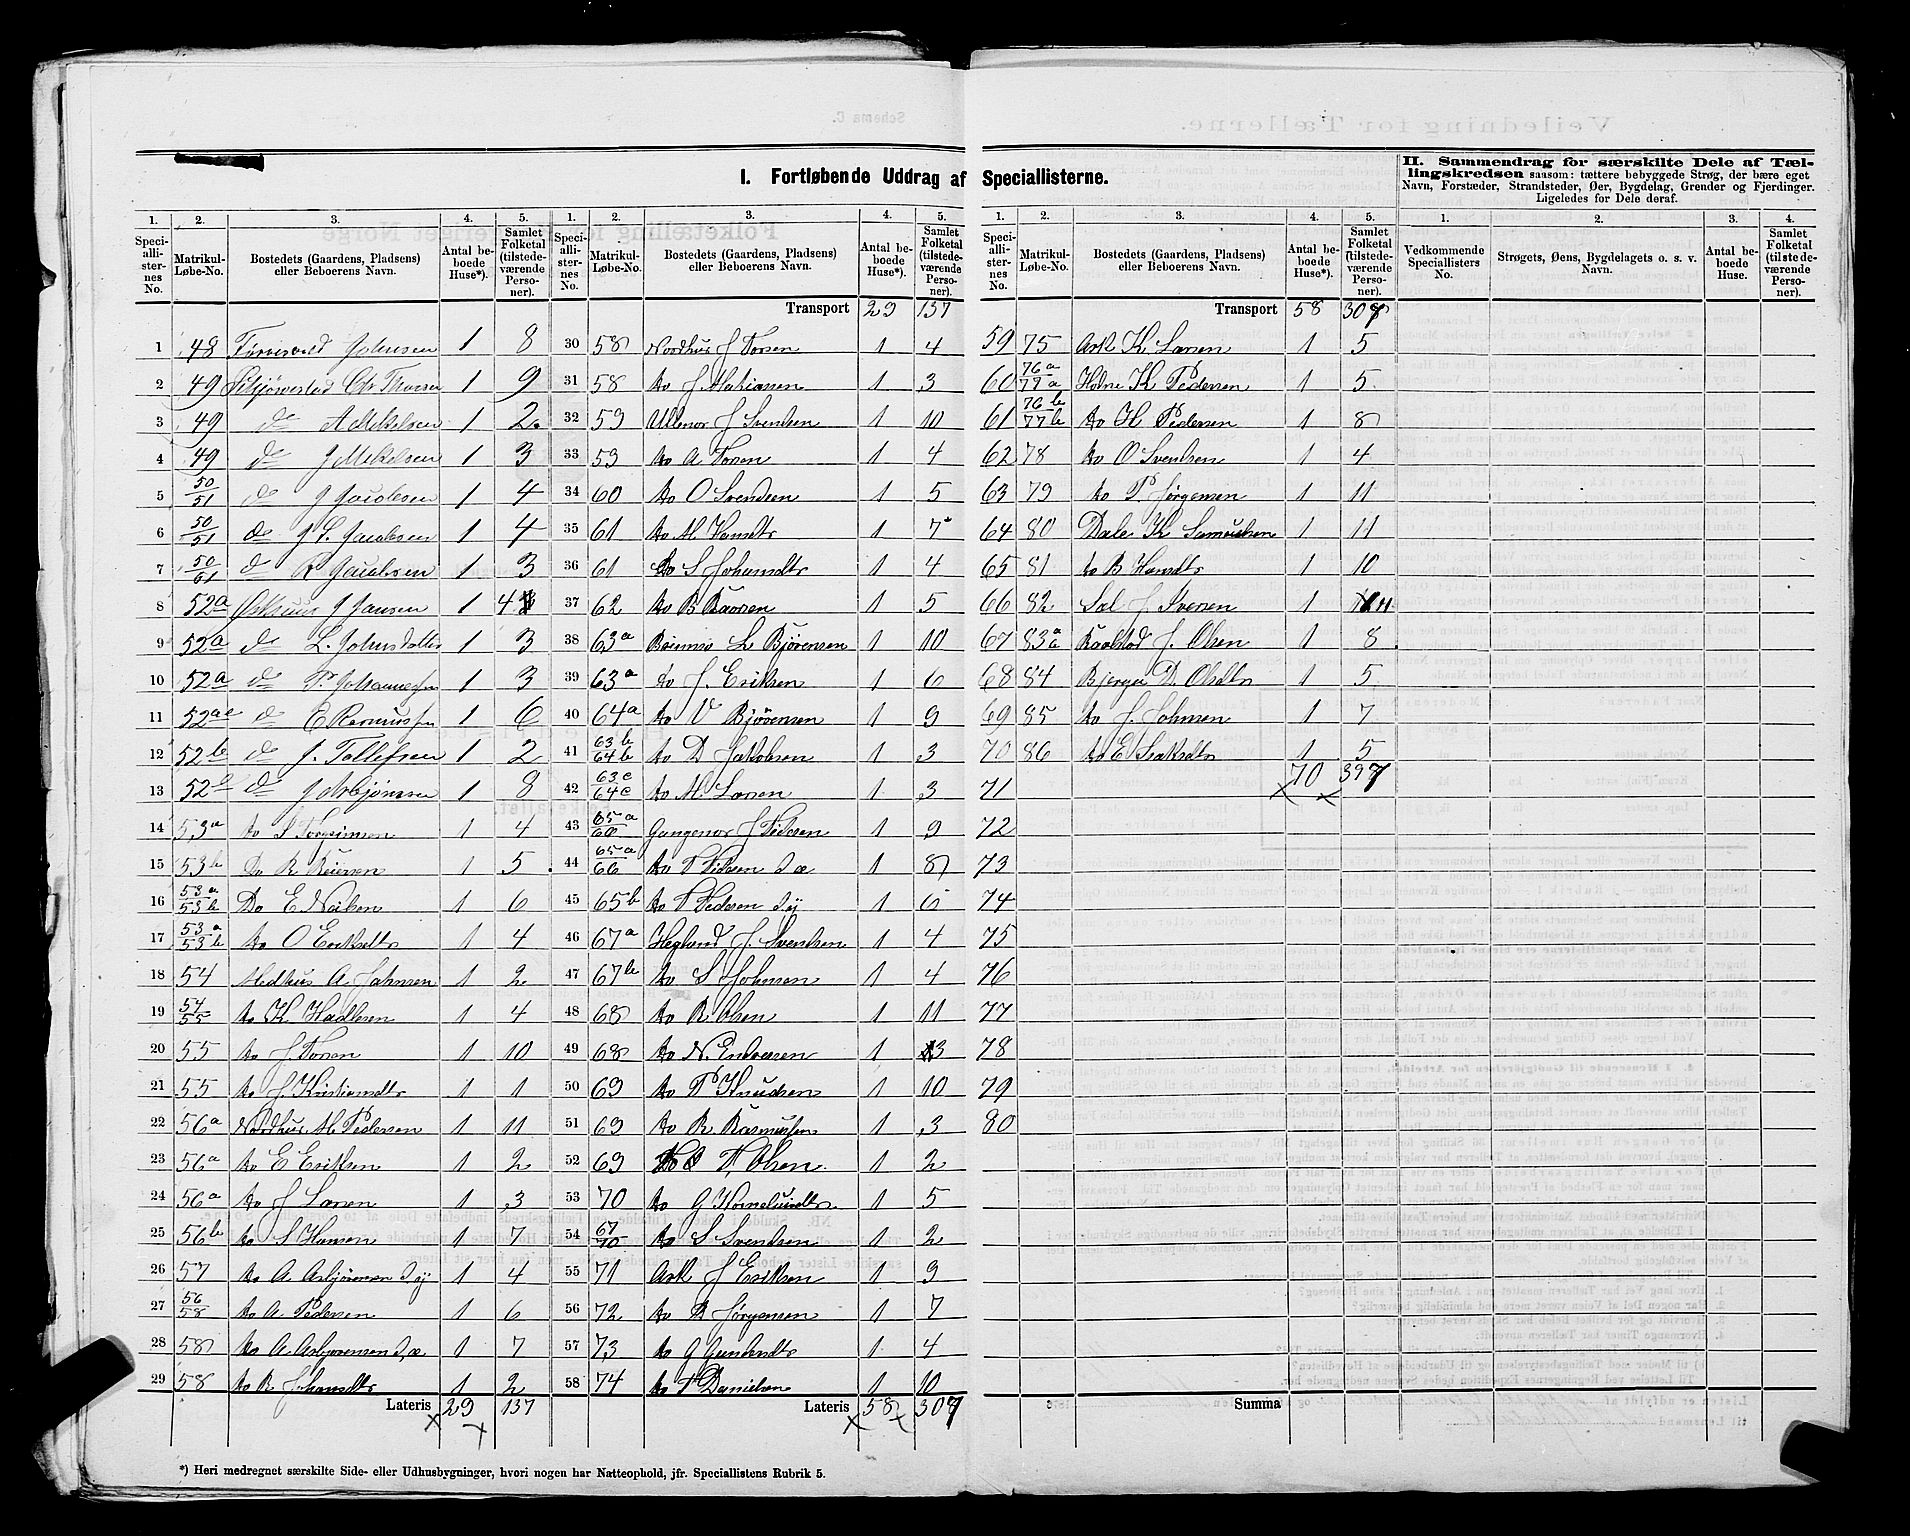 I. Fortløbende Uddrag af Speciallisterne.
II. Sammendrag for særskilte Dele af Tællingskredsen saasom: tættere bebyggede Strøg, der bære eget Navn, Forstæder, Strandsteder, Øer, Bygdelag, Grender og Fjerdinger. Ligeledes for Dele deraf.
1. 2. 3. 4. 5.
Speciallisternes No. Matrikul-Løbe-No. Bostedets (Gaardens, Pladsens) eller Beboerens Navn. Antal beboede Huse*). Samlet Folketal (tilstedeværende Personer).
1 48 Johnsen 1 8
2 49 Chr 1 9
3 49 do A Mikelsen 1 2
4 49 do J Mikelsen 1 3
5 50/51 do J Jacobsen 1 4
6 50/51 do J L. Jacobsen 1 4
7 do R Jacobsen 1 3
8 52a J Jansen 1 4
9 52a do L. Johnsdatter 1 3
10 52a do P. 1 3
11 do E 1 6
12 52b do J. Tollefsen 1 2
13 do J Asbjørnsen 1 8
14 53a do 1 4
15 53b Do R Reiersen 1 5
16 53a/53b Do E 1 6
17 53a/53b do O Eriksdtr 1 4
18 54 Medhus A Johnsen 1 2
19 54/55 do K 1 4
20 55 do J Torsen 1 10
21 55 do J. Kristiansdtr 1 1
22 56a Nordhus M. Pedersen 1 11
23 56a do E Eriksen 1 2
24 56a do J Larsen 1 3
25 56b do S Hansen 1 7
26 57 do A Asbjørnsen d. y 1 4
27 56/58 do A Pedersen 1 6
28 58 do A Asbjørnsen d. æ 1 7
29 58 do R Johansdtr 1 2
Lateris 29 137
1. 2. 3. 4. 5.
Speciallisternes No. Matrikul-Løbe-No. Bostedets (Gaardens, Pladsens) eller Beboerens Navn. Antal beboede Huse*). Samlet Folketal (tilstedeværende Personer).
Transport 29 137
30 58 Nordhus J Torsen 1 4
31 58 do J. 1 3
32 59 Ullenor J Svendsen 1 10
33 59 do A Torsen 1 4
34 60 do O Svendsen 1 5
35 61 do M. Hansdtr 1 7
36 61 do S Johansdtr 1 4
37 62 do B Baarsen 1 5
38 63a L Bjørensen 1 10
39 63a do J. Eriksen 1 6
40 64a do V Bjørensen 1 9
41 63b/64b do D Jakobsen 1 3
42 63c/64c do M. Larsen 1 3
43 65a/66 Gangenor J Pedersen 1 9
44 65a/66 do T Pedersen d æ 1 8
45 65b do T Pedersen d y 1 6
46 67a Hegland J. Svendsen 1 4
47 67b do S Johnsen 1 4
48 68 do R Olsen 1 11
49 68 do N. 1 3
50 69 do T Knudsen 1 10
51 69 do R. Rasmussen 1 3
52 69 Do T Olsen 1 2
53 70 do G 1 5
54 67/70 do S Svendsen 1 2
55 71 Ark J Eriksen 1 9
56 72 do D Jørgensen 1 7
57 73 do G Gundersdtr 1 4
58 74 do T Danielsen 1 10
Lateris 58 307
1. 2. 3. 4. 5.
Speciallisternes No. Matrikul-Løbe-No. Bostedets (Gaardens, Pladsens) eller Beboerens Navn. Antal beboede Huse*). Samlet Folketal (tilstedeværende Personer).
Transport 58 307
59 75 Ark K Larsen 1 5
60 76a/77a Holme K Pedersen 1 5
61 76b/77b do H Pedersen 1 8
62 78 do O Svendsen 1 4
63 79 do P. Jørgensen 1 11
64 80 Dale K Samuelsen 1 11
65 81 do B Hansdtr 1 10
66 82 Sol J Iversen 1 11
67 83 J. Olsen 1 8
68 84 Bjerga D. Olsdtr 1 5
69 85 do J. Johnsen 1 7
70 86 do E Isaksdtr 1 5
70 397
71
72
73
74
75
76
77
78
79
80
Summa
1. 2. 3. 4.
Vedkommende Speciallisters No. Strøgets, Øens, Bygdelagets o. s. v. Navn. Antal beboede Huse. Samlet Folketal (tilstedeværende Personer).
*) Heri medregnet særskilte Side- eller Udhusbygninger, hvori nogen har Natteophold, jfr. Speciallistens Rubrik 5.